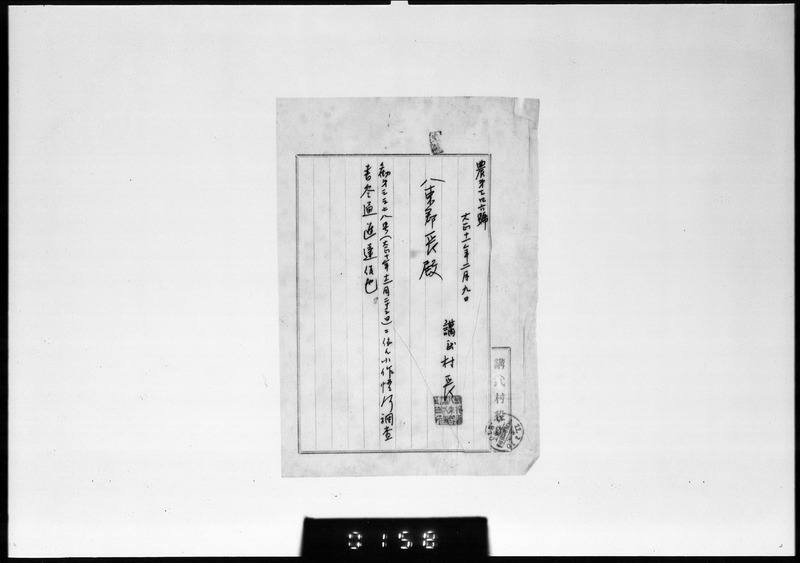 農第二四六號
大正十一年二月九日
講武村長
八束郡長殿
勧第三三七八号(大正十年十二月二十三日)ニ依ル小作慣行調査
書冬通進達候也
講武村役
0158